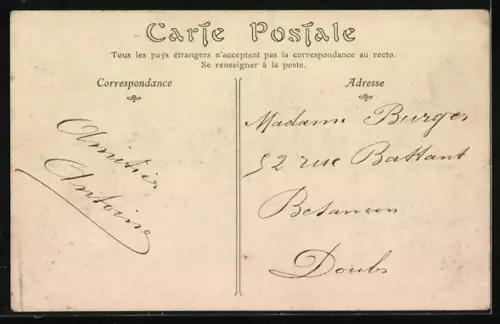 Carte Postale
Tous les pays étrangers n'acceptent pas la correspondance au recto.
Se renseigner à la poste.
Correspondance
Amitiés
Antoine
Adresse
Madame Burger
52 rue Battant
Besançon
Doubs